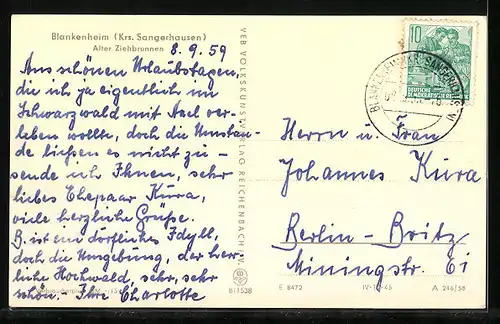 Blankenheim (Krs. Sangerhausen)
Alter Ziehbrunnen
8.9.59
Aus schönen Urlaubstagen,
die ich ja eigentlich im
Schwarzwald mit Axel ver-
leben wollte, doch die Umstän-
de ließen es nicht zu -
sende ich Ihnen, sehr
liebes Ehepaar Kura,
viele herzliche Grüße.
B. ist ein dörfliches Idyll,
doch die Umgebung, der herr-
liche Hochwald, sehr, sehr
schön. - Ihre Charlotte
VEB VOLKSKUNSTVERLAG REICHENBACH (V)
10
DEUTSCHE
DEMOKRATISCHE
BLANKENHEIM (KR. SANGERHAUSEN)
Herrn u. Frau
Johannes Kura
Berlin - Britz
Miningstr. 61
B/1538
E 8472
A 246/58